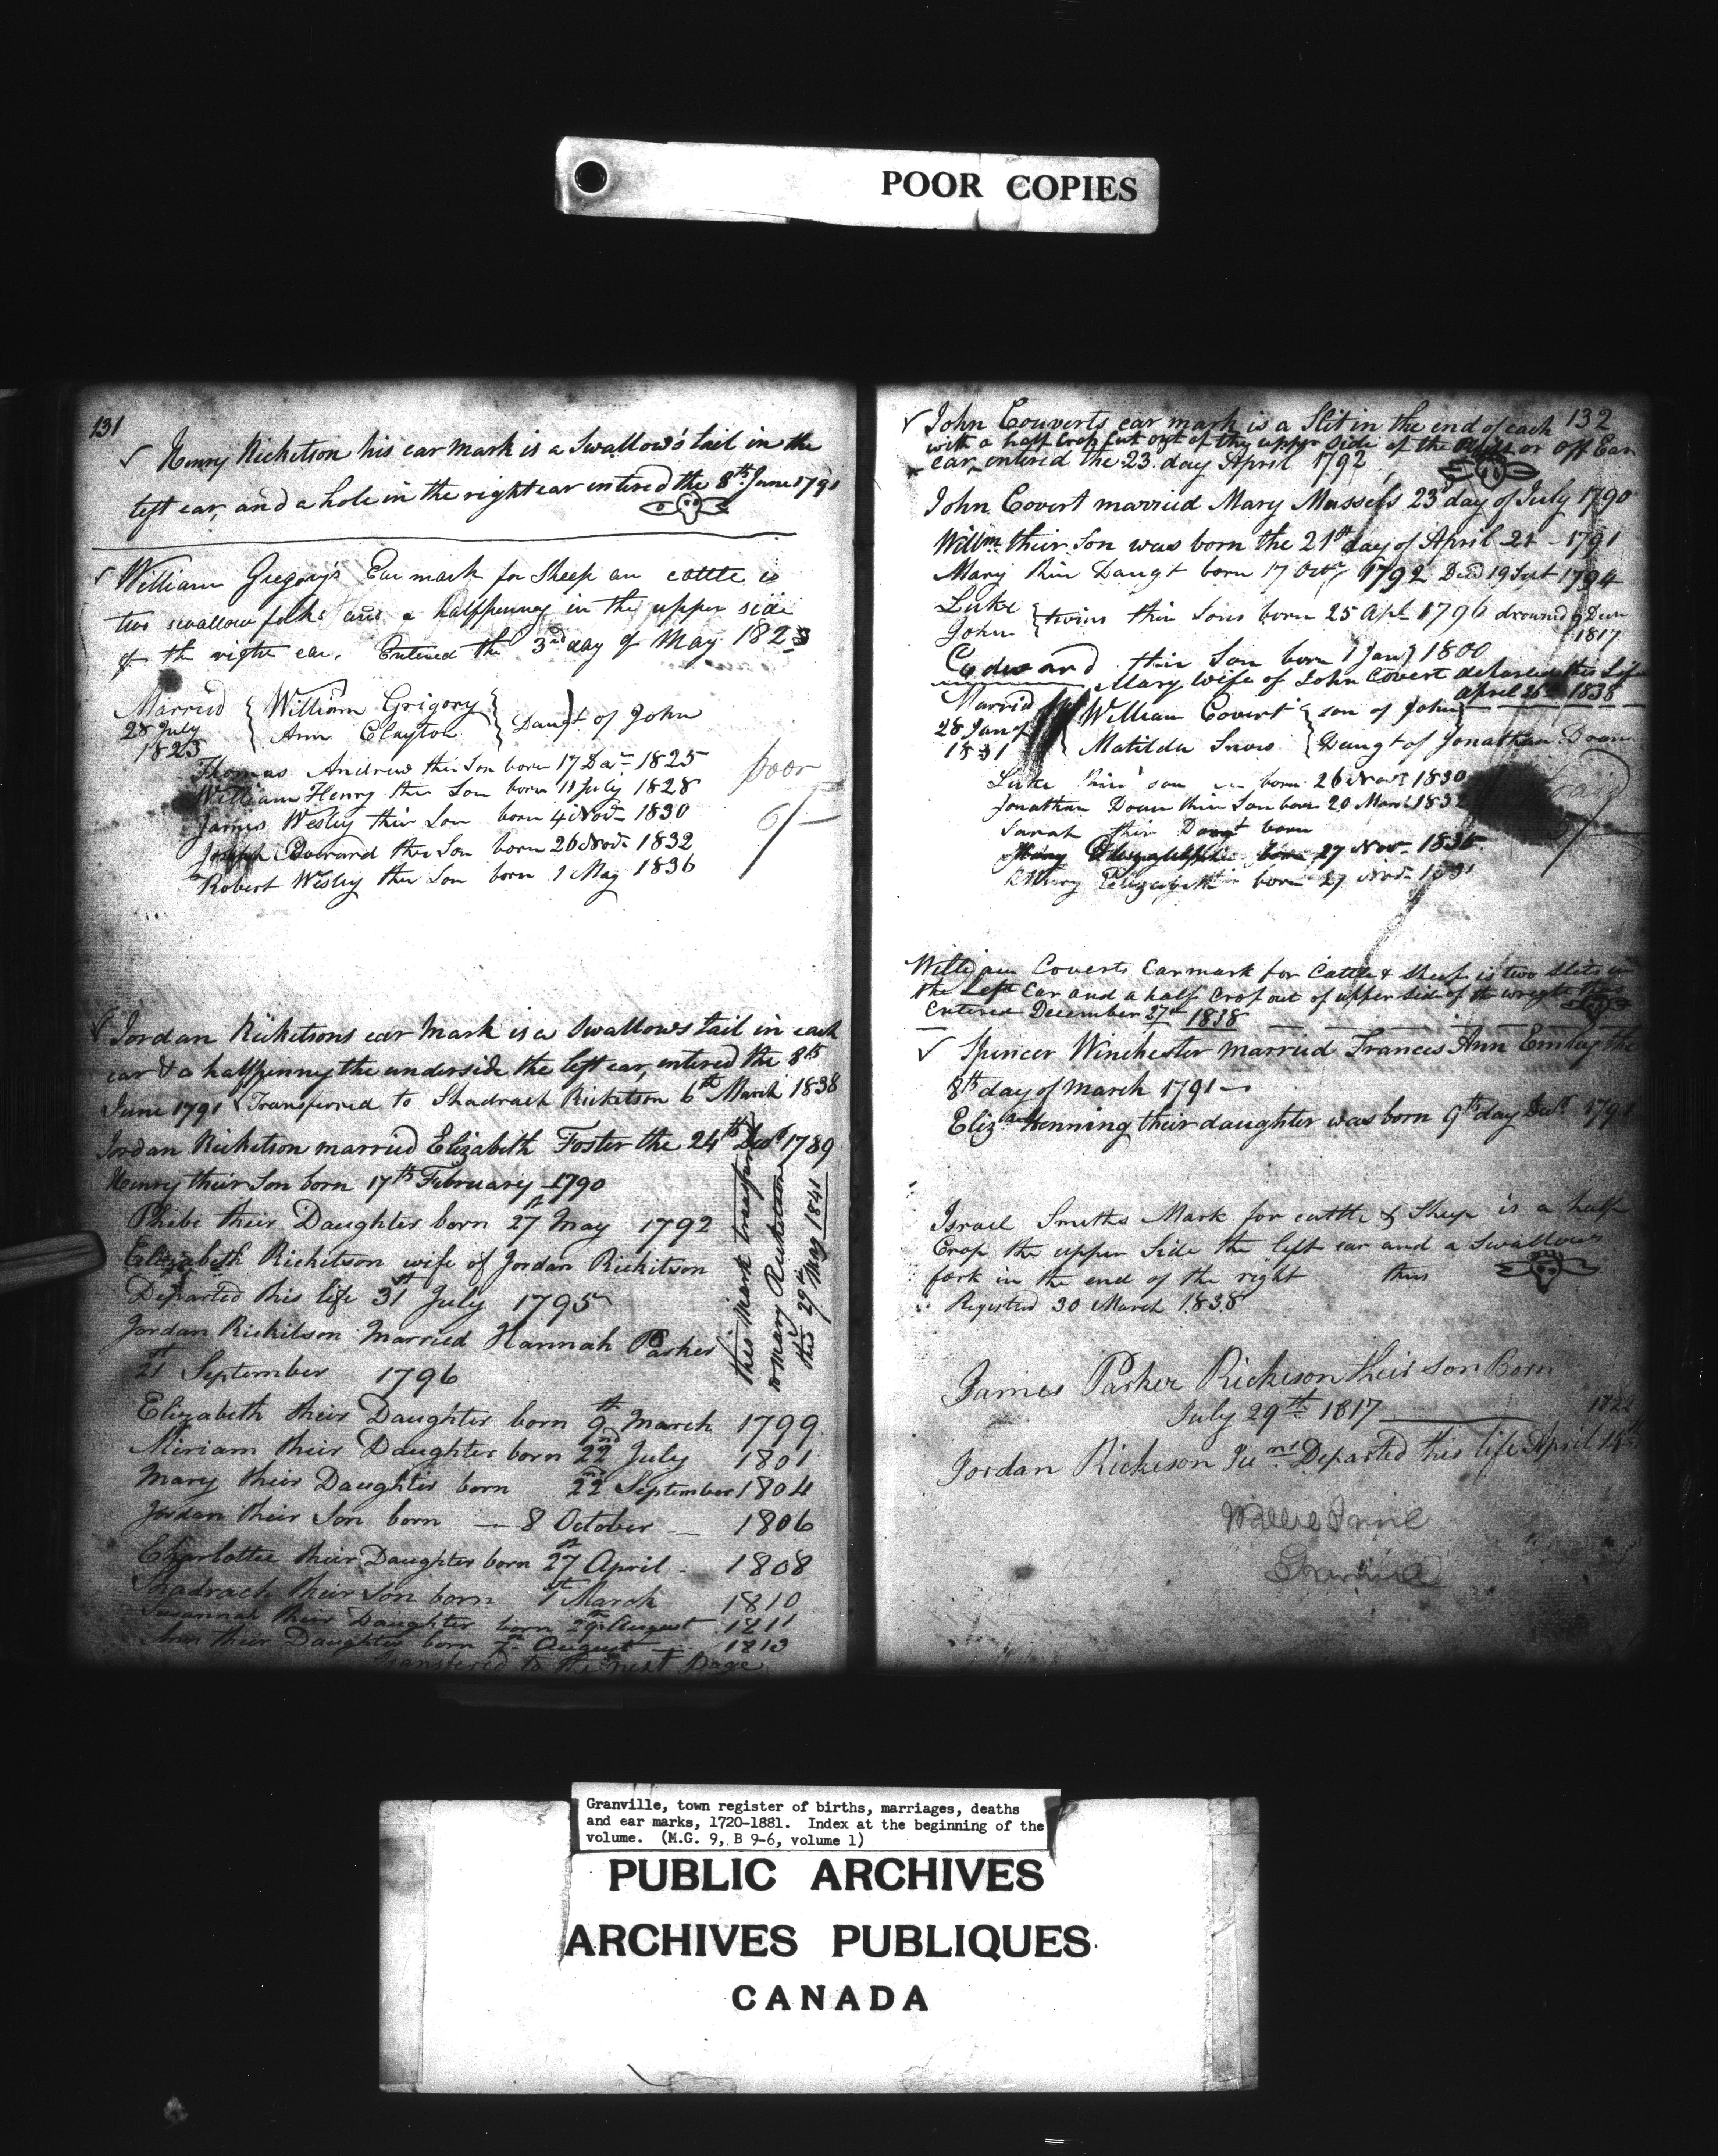 POOR COPIES
131
✓ Henry Ricketson his ear mark is a Swallow's tail in the
left ear, and a hole in the right ear entered the 8th June 1791
✓ William Gregory's Ear mark for Sheep an cattle is
two swallow forks and a halfpenney in the upper side
of the right ear. Entered the 3rd day of May 1823
Married { William Grigory } Daugt of John
28 July { Ann Clayton }
1823
Thomas Andrew their Son born 17 Decr 1825
poor
William Henry their Son born 11 July 1828
James Wesley thir Son born 4 Novr 1830
6/-
Joseph Edward their Son born 26 Novr 1832
Robert Wesley their Son born 1 May 1836
✓ Jordan Ricketsons ear Mark is a Swallows tail in each
ear & a halfpenny the underside the left ear, entered the 8th
June 1791 Transferred to Shadrach Ricketson 6th March 1838
Jordan Ricketson married Elizabeth Foster the 24th Decr 1789
Henry their Son born 17th February 1790
Phebe their Daughter born 27 May 1792
Elizabeth Ricketson wife of Jordan Ricketson
Departed this life 31st July 1795
Jordan Ricketson Married Hannah Parker
21st September 1796
Elizabeth their Daughter born 9th March 1799
Miriam their Daughter born 22nd July 1801
Mary their Daughter born 22nd September 1804
Jordan their Son born — 8 October — 1806
Charlottee their Daughter born 27 April 1808
Shadrach their Son born 1st March 1810
Susannah their Daughter born 29th August 1811
Ann their Daughter born 7th August 1813
Transfered to the next Page
this Mark transfered
to Mary Ricketson
this 29th May 1841
132
✓ John Couverts ear mark is a Slit in the end of each
with a half Crop cut out of the upper side of the or off Ear
ear entered the 23. day April 1792
John Covert married Mary Mussels 23d day of July 1790
Willm their Son was born the 21st day of April 21 - 1791
Mary their Daugt born 17 Octr 1792 Died 19 Sept 1794
Luke } twins thir Sons born 25 Apl 1796 drouned 9 Decr
John } 1817
thir Son born 1 Jany 1800
Mary Wife of John Covert departed this Life
april 26th 1838
Married { William Covert } son of John
28 Jany { Matilda } Daugt of Jonathan
1831
Luke thir son born 26 Novr 1830
Jonathan their Son born 20 March 1832
Sarah thir Daugt born
born 27 Nov. 1835
Elizabeth born 27 Novr
William Coverts Earmark for Cattle & Sheep is two Slits in
the Left Ear and a half Crop out of upper side of the wright
Entered December 27th 1838
✓ Spencer Winchester married Frances Ann Emily the
8th day of March 1791 —
Eliz Ann Henning their daughter was born 9th day Decr 1791
Israel Smiths Mark for cattle & Sheep is a half
Crop the upper Side the left ear and a Swallows
fork in the end of the right thus
Registred 30 March 1838
James Parker Rickeson their Son Born
July 29th 1817
1822
Jordan Rickeson Departed this life April 14th
Granville, town register of births, marriages, deaths
and ear marks, 1720-1881. Index at the beginning of the
volume. (M.G. 9, B 9-6, volume 1)
PUBLIC ARCHIVES
ARCHIVES PUBLIQUES
CANADA